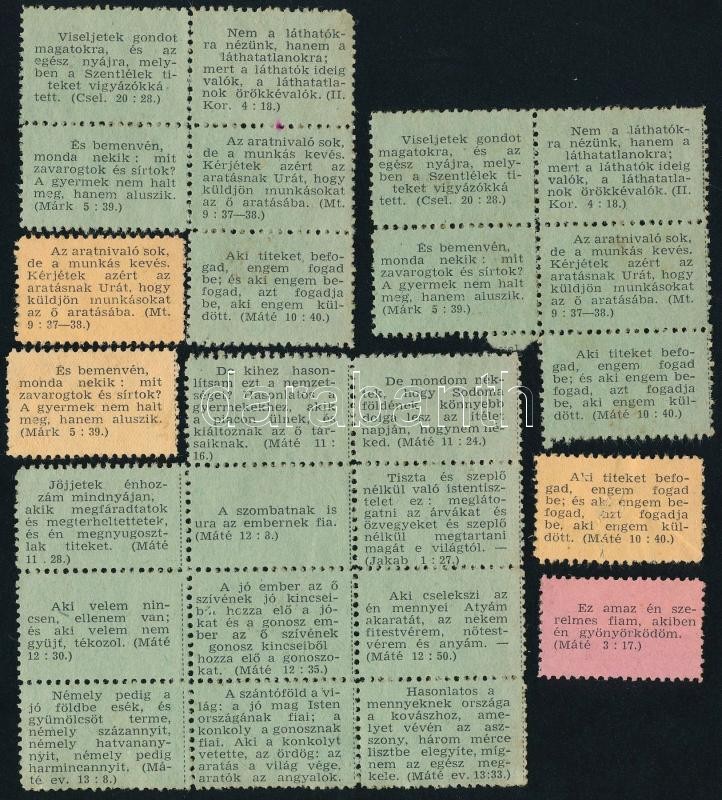 Viseljetek gondot
magatokra, és az
egész nyájra, mely-
ben a Szentlélek ti-
teket vigyázókká
tett. (Csel. 20 : 28.)
Nem a láthatók-
ra nézünk, hanem a
láthatatlanokra;
mert a láthatók ideig
valók, a láthatatla-
nok örökkévalók. (II.
Kor. 4 : 18.)
És bemenvén,
monda nekik : mit
zavarogtok és sírtok?
A gyermek nem halt
meg, hanem aluszik.
(Márk 5 : 39.)
Az aratnivaló sok,
de a munkás kevés.
Kérjétek azért az
aratásnak Urát, hogy
küldjön munkásokat
az ő aratásába. (Mt.
9 : 37—38.)
Az aratnivaló sok,
de a munkás kevés.
Kérjétek azért az
aratásnak Urát, hogy
küldjön munkásokat
az ő aratásába. (Mt.
9 : 37—38.)
Aki titeket befo-
gad, engem fogad
be; és aki engem be-
fogad, azt fogadja
be, aki engem kül-
dött. (Máté 10 : 40.)
És bemenvén,
monda nekik : mit
zavarogtok és sírtok?
A gyermek nem halt
meg, hanem aluszik.
(Márk 5 : 39.)
Viseljetek gondot
magatokra, és az
egész nyájra, mely-
ben a Szentlélek ti-
teket vigyázókká
tett. (Csel. 20 : 28.)
Nem a láthatók-
ra nézünk, hanem a
láthatatlanokra;
mert a láthatók ideig
valók, a láthatatla-
nok örökkévalók. (II.
Kor. 4 : 18.)
És bemenvén,
monda nekik : mit
zavarogtok és sírtok?
A gyermek nem halt
meg, hanem aluszik.
(Márk 5 : 39.)
Az aratnivaló sok,
de a munkás kevés.
Kérjétek azért az
aratásnak Urát, hogy
küldjön munkásokat
az ő aratásába. (Mt.
9 : 37—38.)
Aki titeket befo-
gad, engem fogad
be; és aki engem be-
fogad, azt fogadja
be, aki engem kül-
dött. (Máté 10 : 40.)
De kihez hason-
lítsam ezt a nemzet-
séget? Hasonlatos a
gyermekekhez, akik
a piacon ülnek, és
kiáltoznak az ő tár-
saiknak. (Máté 11 :
16.)
De mondom nék-
tek, hogy Sodoma
földének könnyebb
dolga lesz az ítélet
napján, hogynem né-
ked. (Máté 11 : 24.)
Jöjjetek énhoz-
zám mindnyájan,
akik megfáradtatok
és megterheltettetek,
és én megnyugosz-
lak titeket. (Máté
11 . 28.)
A szombatnak is
ura az embernek fia.
(Máté 12 : 8.)
Tiszta és szeplő
nélkül való istentisz-
telet ez : megláto-
gatni az árvákat és
özvegyeket és szeplő
nélkül megtartani
magát e világtól. —
(Jakab 1 : 27.)
Aki velem nin-
csen, ellenem van;
és aki velem nem
gyüjt, tékozol. (Máté
12 : 30.)
A jó ember az ő
szívének jó kincsei-
ből hozza elő a jó-
kat és a gonosz em-
ber az ő szívének
gonosz kincseiből
hozza elő a gonoszo-
kat. (Máté 12 : 35.)
Aki cselekszi az
én mennyei Atyám
akaratát, az nekem
fitestvérem, nőtest-
vérem és anyám. —
(Máté 12 : 50.)
Némely pedig a
jó földbe esék, és
gyümölcsöt terme,
némely százannyit,
némely hatvanany-
nyit, némely pedig
harmincannyit. (Má-
té ev. 13 : 8.)
A szántóföld a vi-
lág: a jó mag Isten
országának fiai; a
konkoly a gonosznak
fiai. Aki a konkolyt
vetette, az ördög: az
aratás a világ vége,
aratók az angyalok.
Hasonlatos a
mennyeknek országa
a kovászhoz, ame-
lyet vévén az asz-
szony, három mérce
lisztbe elegyíte, míg-
nem az egész meg-
kele. (Máté ev. 13:33.)
Aki titeket befo-
gad, engem fogad
be; és aki engem be-
fogad, azt fogadja
be, aki engem kül-
dött. (Máté 10 : 40.)
Ez amaz én sze-
relmes fiam, akiben
én gyönyörködöm.
(Máté 3 : 17.)
darabanth